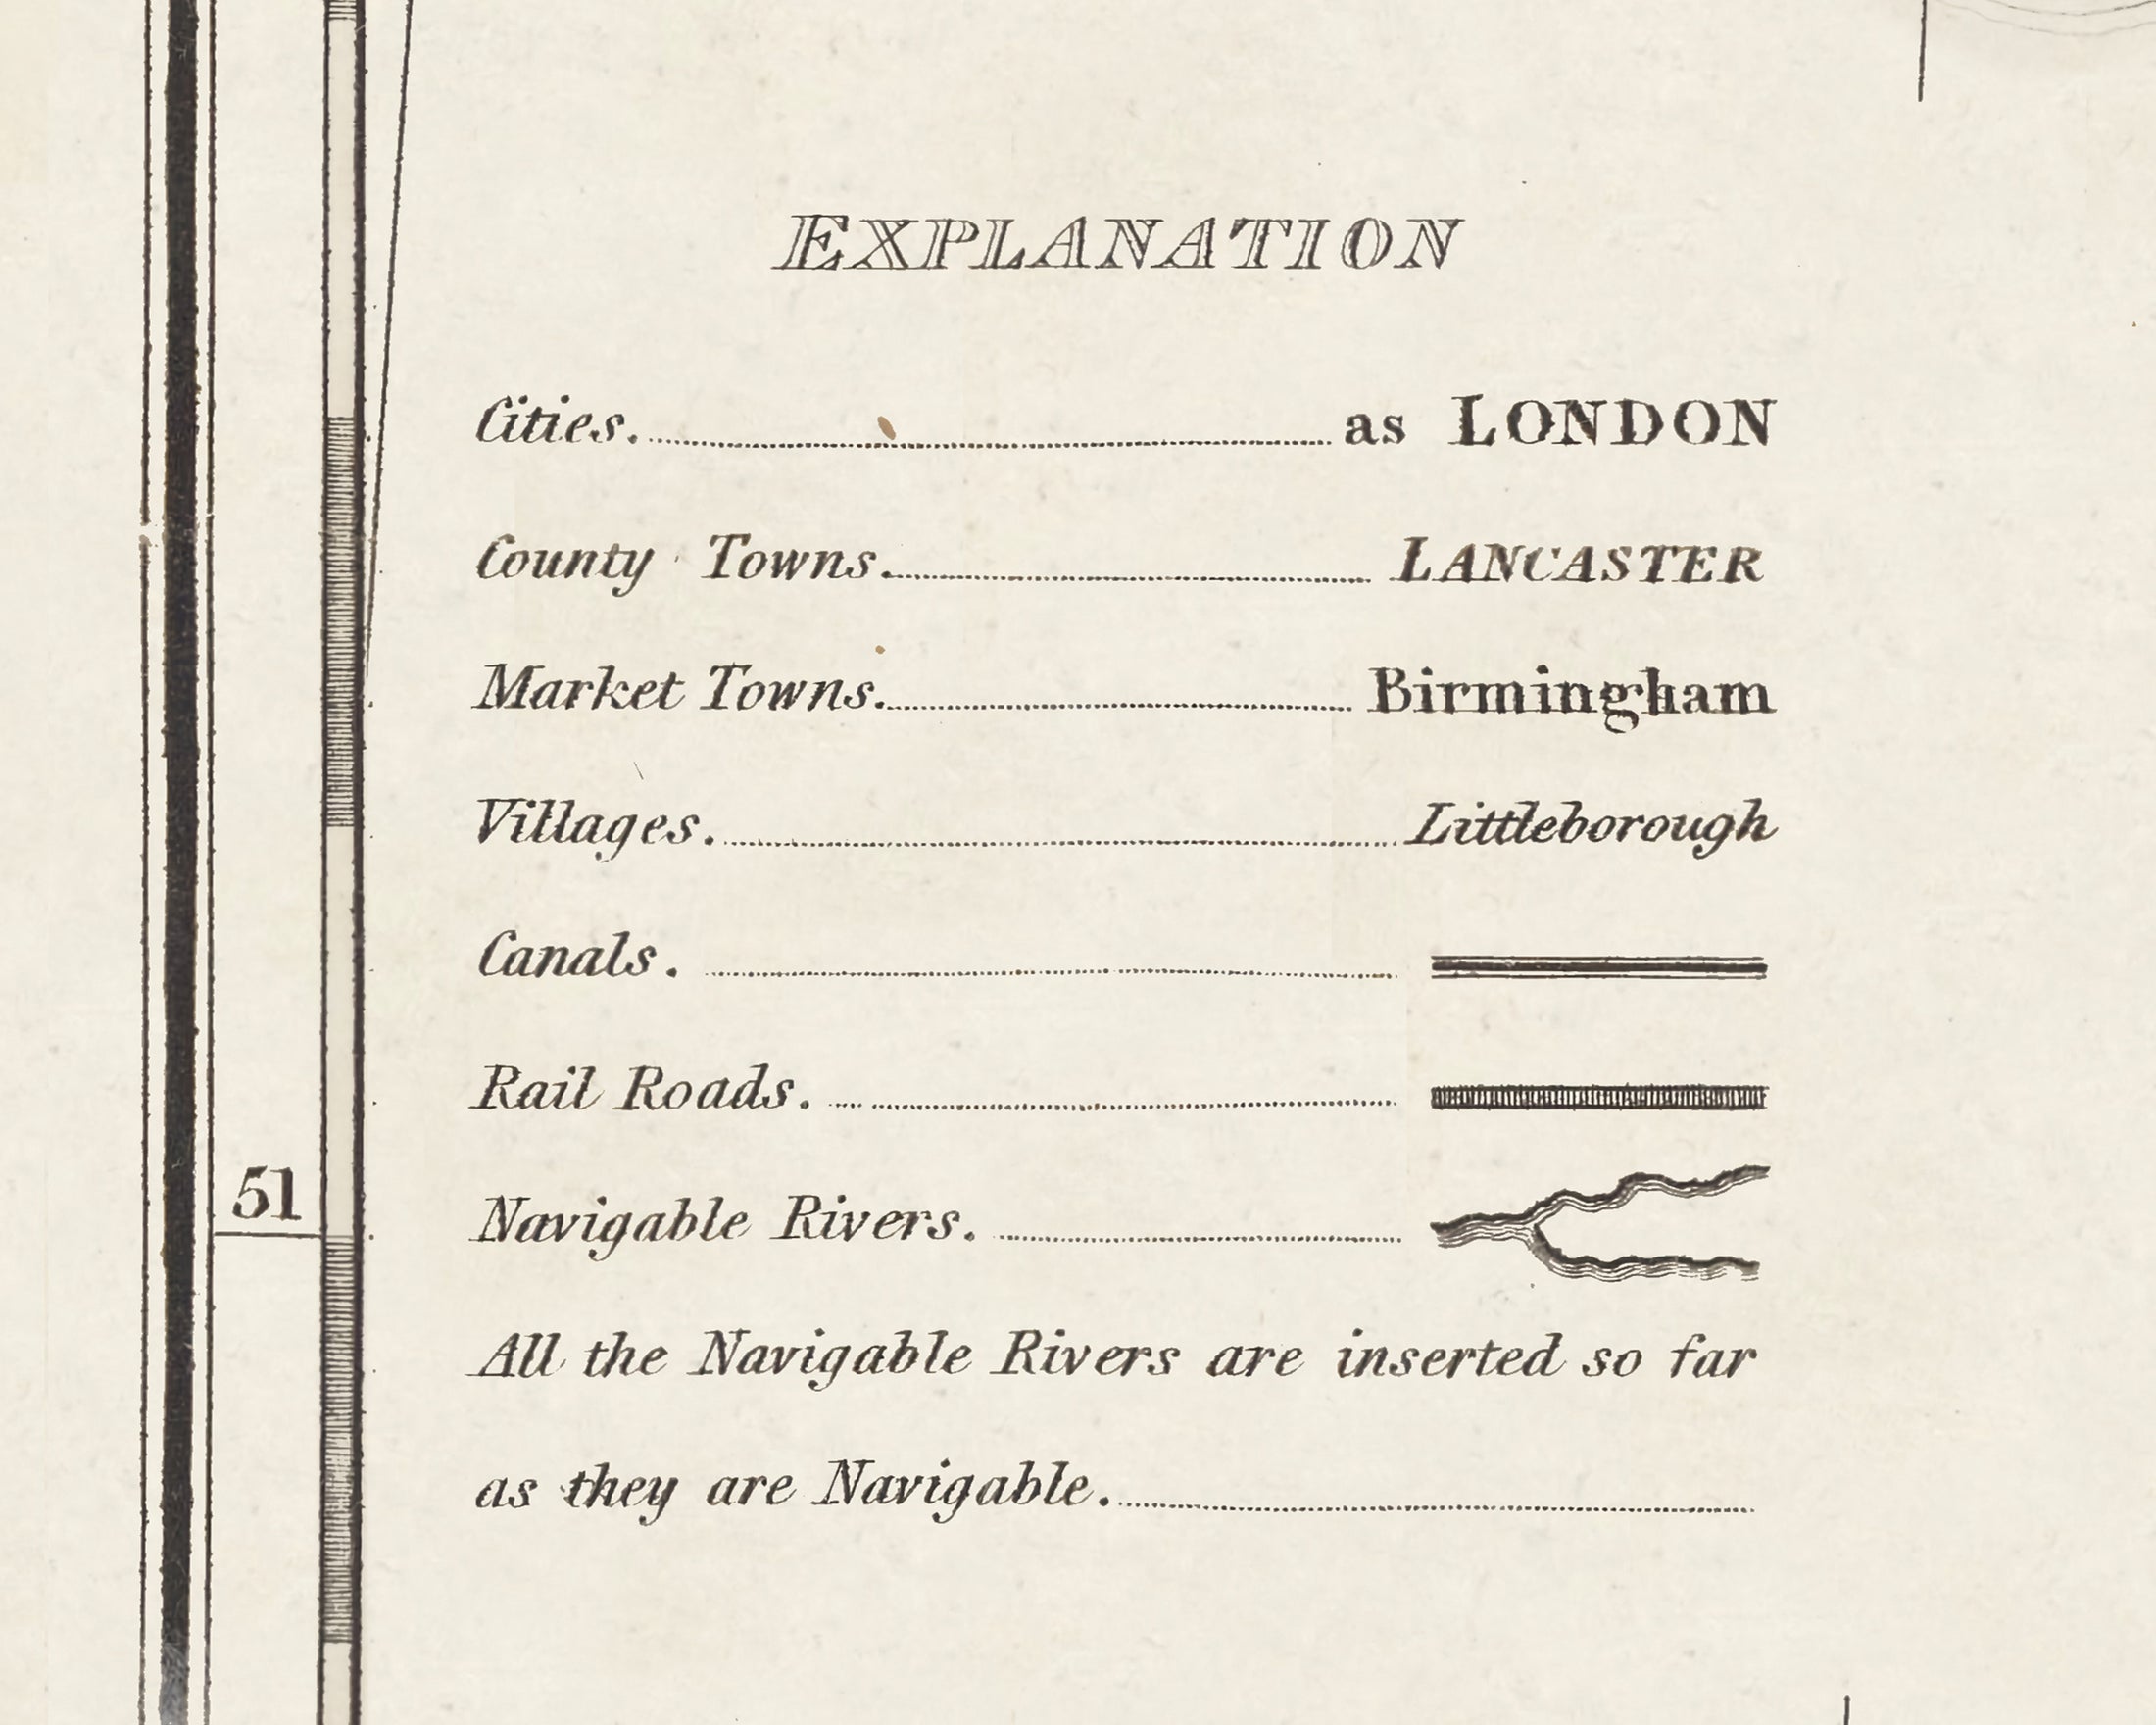 EXPLANATION
Cities. as LONDON
County Towns. LANCASTER
Market Towns. Birmingham
Villages. Littleborough
Canals.
Rail Roads.
51
Navigable Rivers.
All the Navigable Rivers are inserted so far
as they are Navigable.